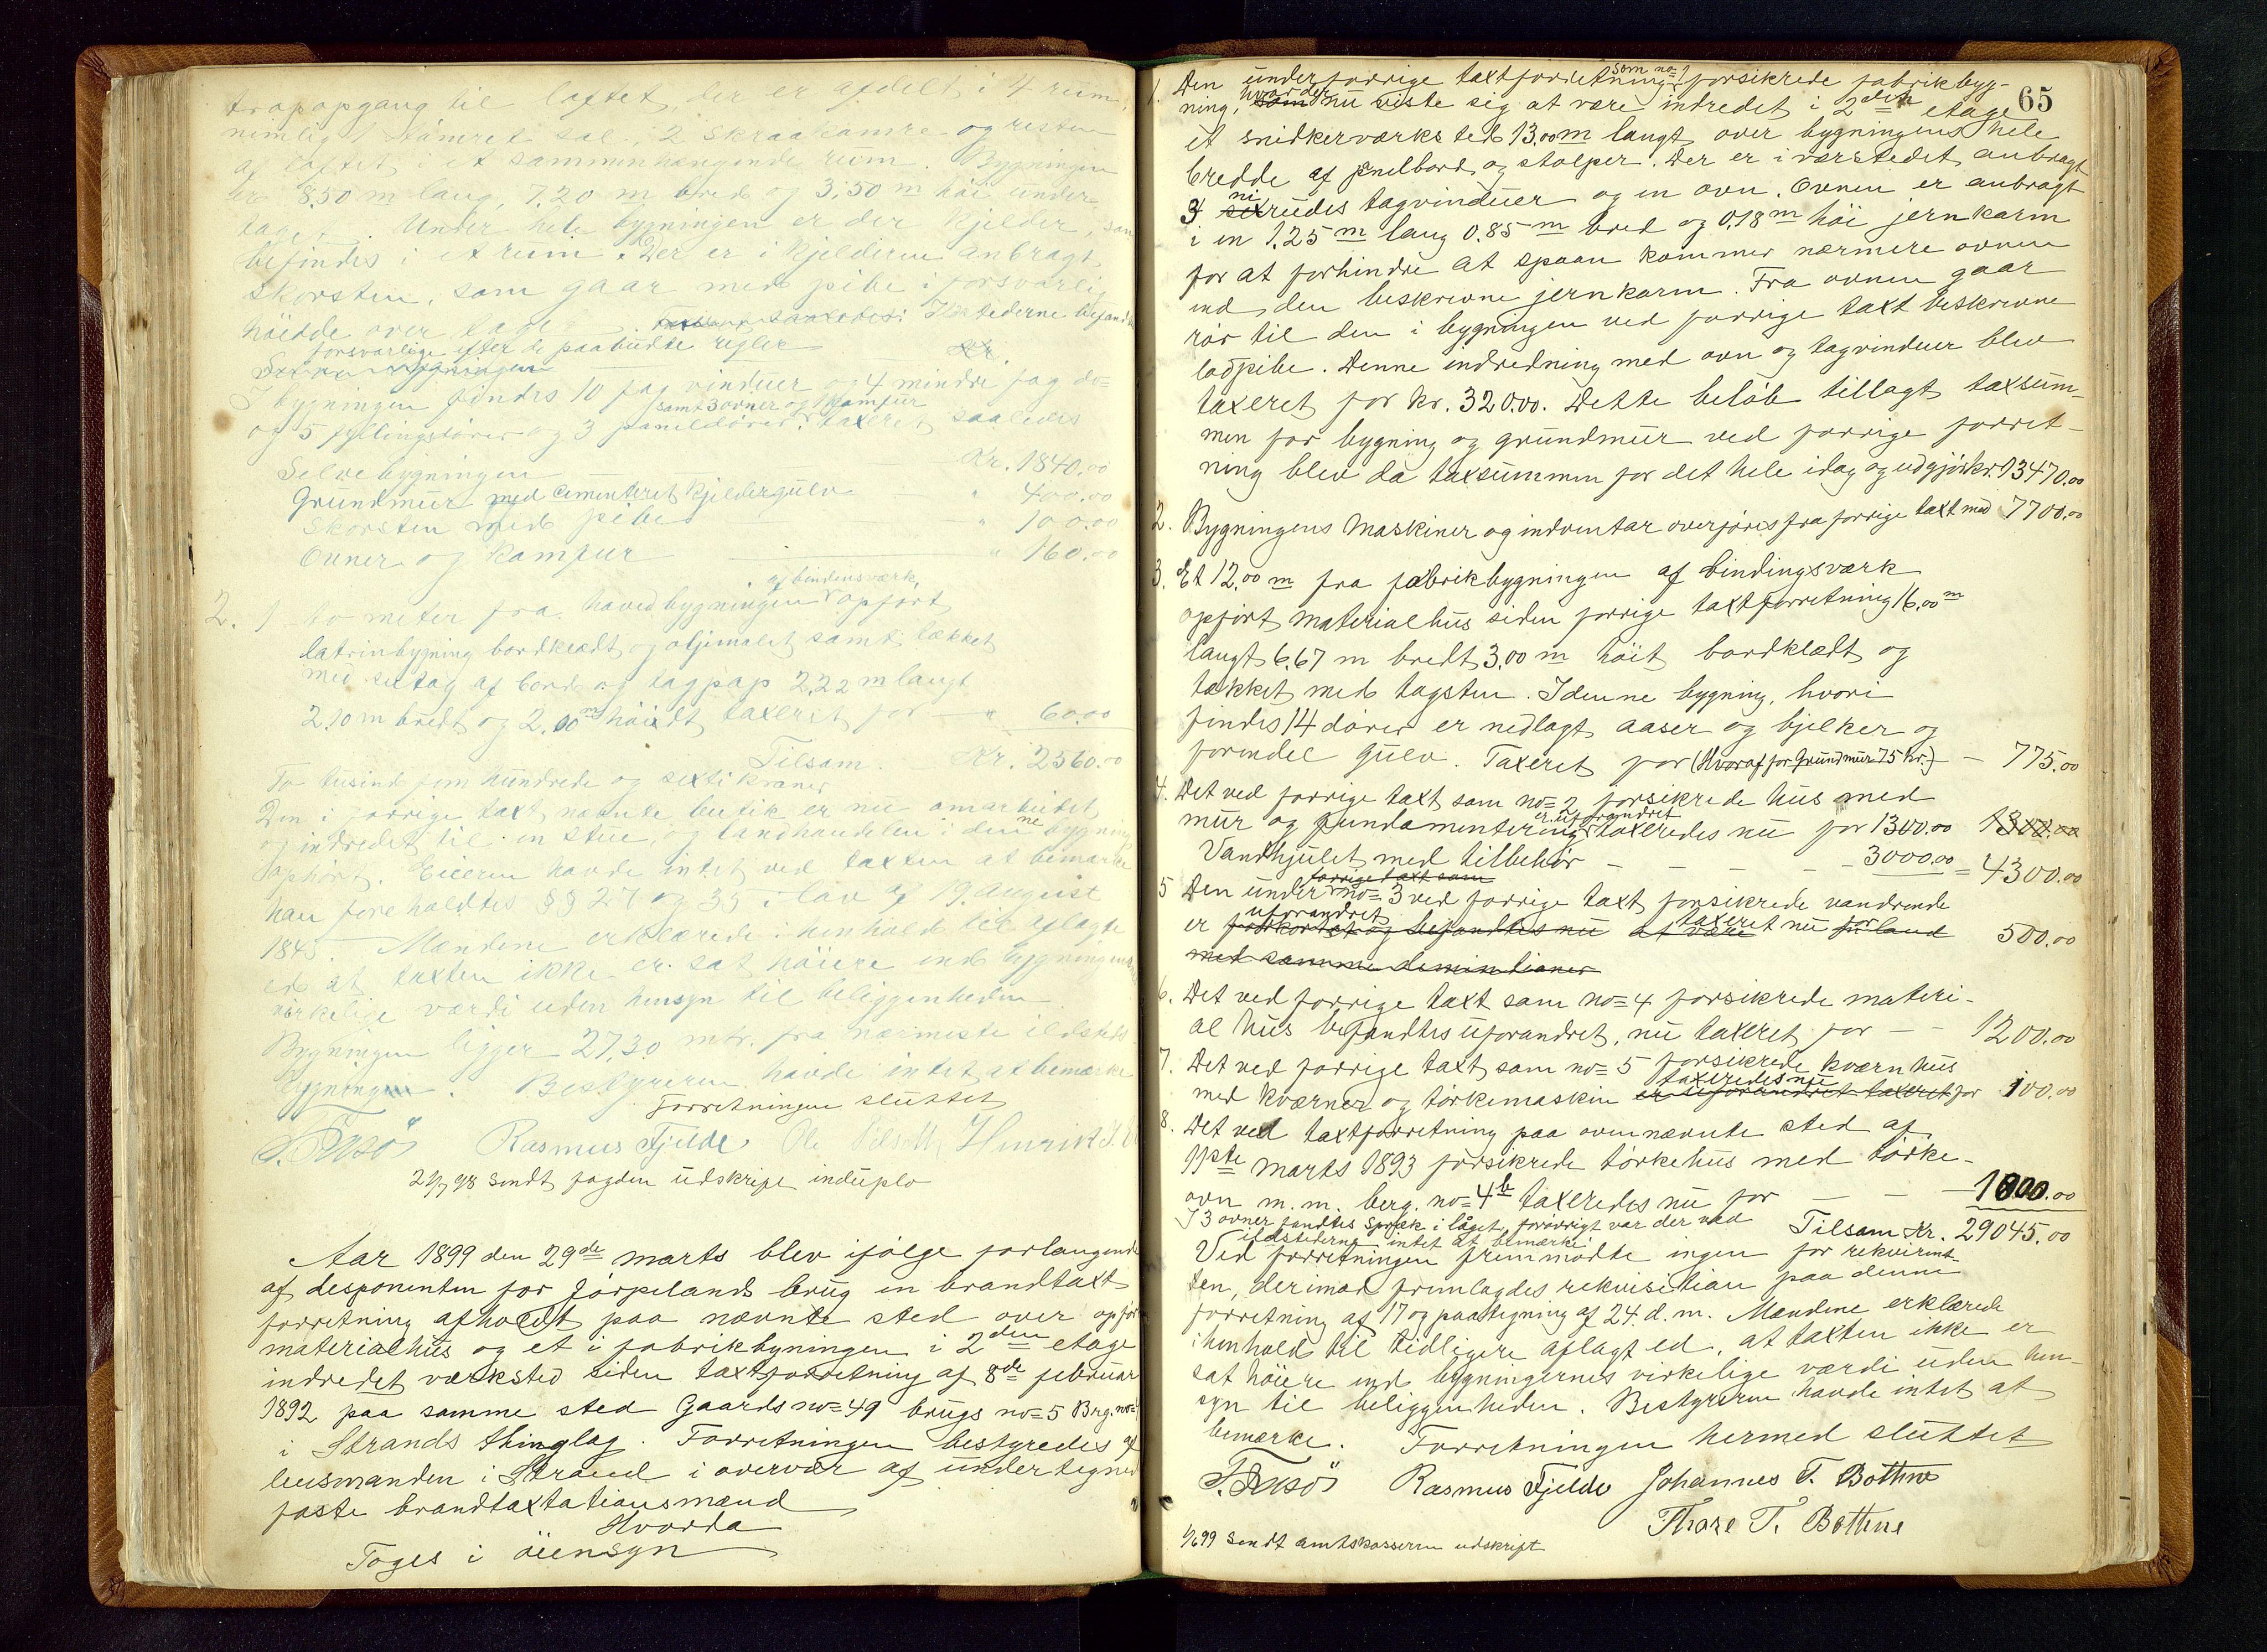 trapopgang til loftet, der er afdelt i 4 rum,
nimlig 1 tømret sal, 2 skraakamre og resten
af loftet i et sammenhængende rum. Bygningen
er 8,50 m lang, 7,20 m bred og 3,50 m høi under
taget. Under hele bygningen er der kjelder, som
befindes i et rum. Der er i kjelderen anbragt
skorsten, som gaar med pibe i forsvarlig
høidde over taget. Ildstederne befandtes
forsvarlige efter de paabudte regler
Kr.
I bygningen findes 10 fag vinduer og 4 mindre fag do=
samt 3 ovner og 1 komfur
og 5 fyllingsdører og 3 paneldører. taxeret saaledes
Selve bygningen Kr. 1840.00
Grundmur med cementeret kjeldergulv " 400.00
Skorsten med pibe " 100.00
Ovner og komfur " 160.00
af bindensværk,
2. 1 to meter fra hovedbygningen opført
latrinbygning bordklædt og oljemalet samt tækket
med sutag af bord og tagpap 2,22 m langt
2,10 m bredt og 2,00 m høidt, taxeret for — " 60.00
Tilsam. Kr. 2560.00
To tusind fem hundrede og sexti kroner
Den i forrige taxt nævnte butik er nu omarbeidet
og indredet til en stue, og landhandelen i denne bygning
ophørt. Eieren havde intet ved taxten at bemærke
han foreholdtes §§ 27 og 35 i lov af 19 august
1845. Mændene erklærede i henhold til aflagte
ed at taxten ikke er sat høiere end bygningens
virkelige værdi uden hensyn til beliggenheden
Bygningen ligger 27,30 mtr. fra nærmeste ildsteds
bygningen. Bestyreren havde intet at bemærke
Forretningen sluttet
Rasmus Fjelde Henrik
2/7 98 sendt fogden udskript induplo
Aar 1899 den 29de marts blev ifølge forlangende
af desponenten for Jørpelands brug en brandtaxt-
forretning afholdt paa nævnte sted over opført
materialhus og et i fabrikbyningen i 2den etage
indredet værksted siden taxtforretning af 8de februar
1892 paa samme sted Gaards no= 49 brugs no= 5 Brg. no=
i Strands thinglag. Forretningen bestyredes af
lensmanden i Strand i overvær af undertegnede
faste brandtaxtationsmænd
Hvorda
Toges i øiensyn
65
som no= 1
1. Den under forrige taxtforretning forsikrede fabrikbyg-
hvor der
ning, som nu viste sig at være indredet i 2den etage
et snidkerværksted 13.00 m langt over bygningens hele
bredde af panelbord og stolper. Der er i værstedet anbragt
ni
3 sex rudes tagvinduer og en ovn. Ovnen er anbragt
i en 1.25 m lang 0.85 m bred og 0,18 m høi jernkarm
for at forhindre at spaan kommer nærmere ovnen
end den beskrevne jernkarm. Fra ovnen gaar
rør til den i bygningen ved forrige taxt beskrevne
lodpibe. Denne indredning med ovn og tagvinduer blev
taxeret for kr. 320.00. Dette beløb tillagt taxsum-
men for bygning og grundmur ved forrige forret-
ning blev da taxsummen for det hele idag og udgjør kr. 13470.00
2. Bygningens Maskiner og indventar overføres fra forrige taxt med 7700.00
3. Et 12.00 m fra fabrikbygningen af bindingsværk
opført materialhus siden forrige taxtforretning 16.00 m
langt 6,67 m bredt 3,00 m høit bordklædt og
tækket med tagsten. I denne bygning, hvori
findes 14 dører er nedlagt aaser og bjelker og
foruden del gulv. Taxeret for (Hvoraf for Grundmur 75 kr.) — 775.00
4. Det ved forrige taxt som no= 2 forsikrede hus med
er uforandret
mur og fundamentering taxeredes nu for 1300.00 1300.00
Vandhjulet med tilbehør — — — 3000.00 = 4300.00
forrige taxt som
5 Den under no= 3 ved forrige taxt forsikrede vandrende
uforandret taxeret nu for
er forkortet og befandtes nu at være 500.00
med samme demintioner
6. Det ved forrige taxt som no= 4 forsikrede materi-
al hus befandtes uforandret, nu taxeret for — — 1200.00
7. Det ved forrige taxt som no= 5 forsikrede kværnhus
taxeredes nu
med kværner og tørkemaskin er uforandret taxeret for 100.00
8. Det ved taxtforretning paa ovennævnte sted af
11ste marts 1893 forsikrede tørkehus med tørke-
ovn m.m. berg. no= 4b taxeredes nu for — — 1000.00
I 3 ovner fandtes spræk i låget, forøvrigt var der ved Tilsam Kr. 29045.00
ildstederne intet at bemærke
Ved forretningen fremmødte ingen for rekvirent-
ten, derimod fremlagdes rekvisition paa denne
forretning af 17 og paategning af 24. d.m. Mændene erklærede
ihenhold til tidligere aflagt ed, at taxten ikke er
sat høiere end bygningernes virkelige værdi uden hen-
syn til beliggenheden. Bestyreren havde intet at
bemærke. Forretningen hermed sluttet
Rasmus Fjelde Johannes T. Bøthne
Thore T. Bøthne
1/6 99 sendt amtskasseren udskript